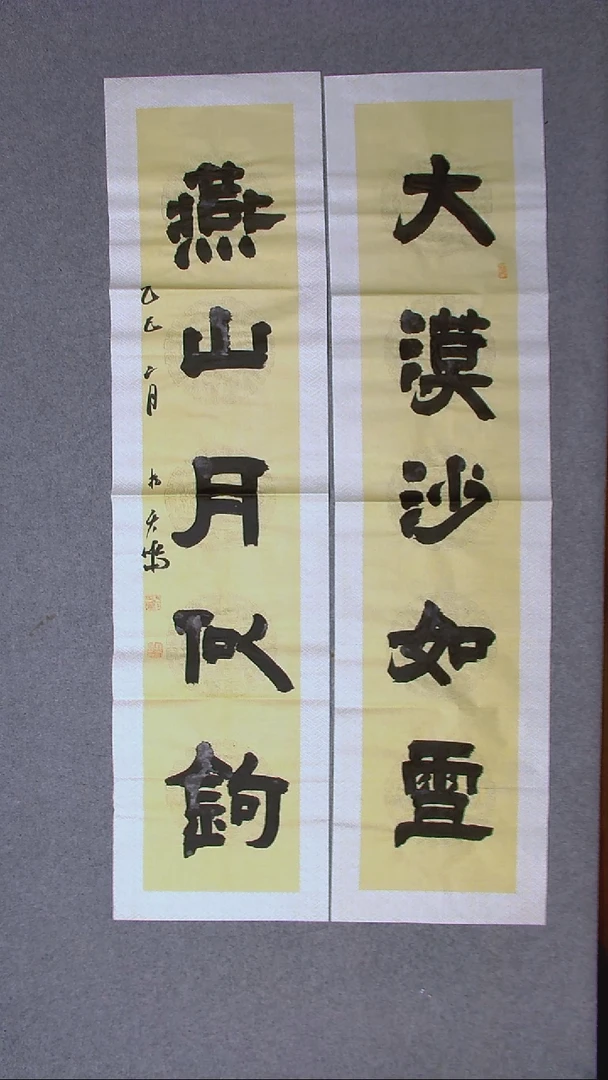 大漠沙如雪
燕山月似鉤
乙巳
月